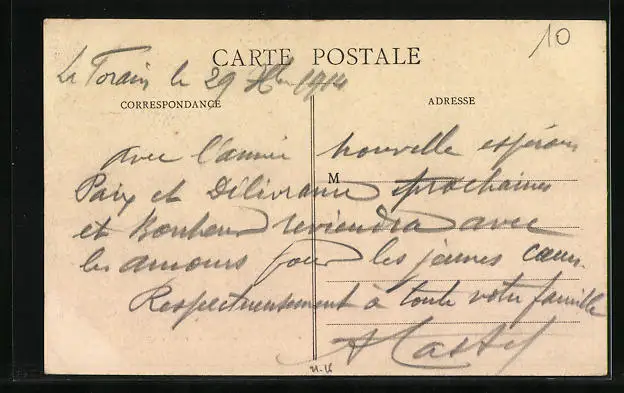 10
CARTE POSTALE
le 29 Xbre 1914
CORRESPONDANCE
ADRESSE
avec l'année nouvelle espérons
M
Paix et Délivrance prochaines
et Bonheur reviendra avec
les amours pour les jeunes cœurs.
Respectueusement à toute votre famille